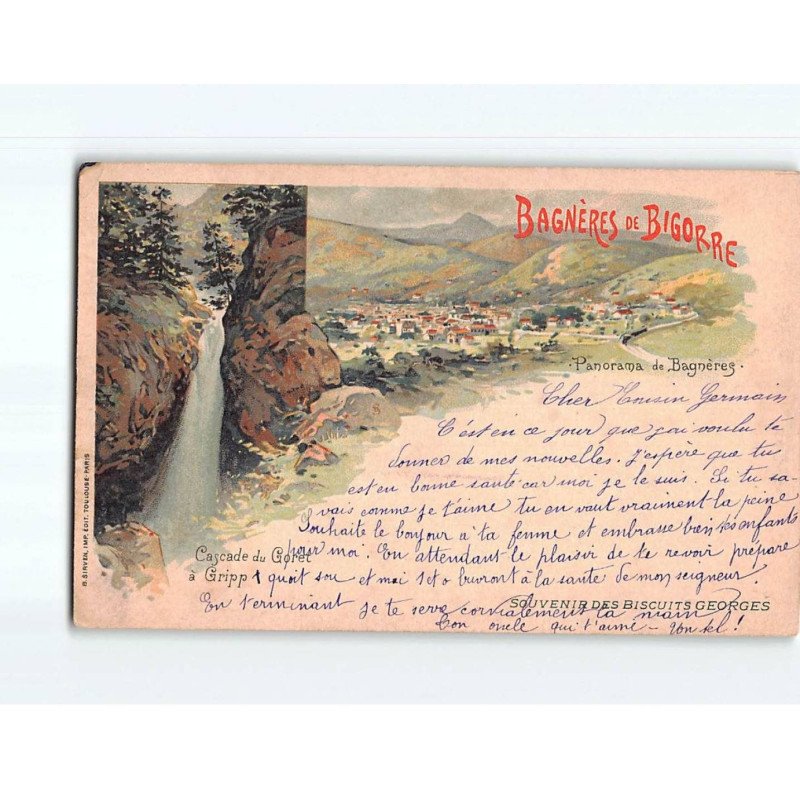 BAGNÈRES DE BIGORRE
Panorama de Bagnères.
Cher Cousin Germain
C'est en ce jour que j'ai voulu te
donner de mes nouvelles. J'espère que tu
est en bonne santé car moi je le suis. Si tu sa-
vais comme je t'aime tu en vaut vraiment la peine
Souhaite le bonjour a ta femme et embrasse bien tes enfants
pour moi. En attendant le plaisir de te revoir prépare
Cascade du Goret
à Gripp
quoit sou et moi buront à la santé de mon seigneur.
En terminant je te serre cordialement la main
SOUVENIR DES BISCUITS GEORGES
Ton oncle qui t'aime -
B. SIRVEN, IMP. ÉDIT. TOULOUSE-PARIS